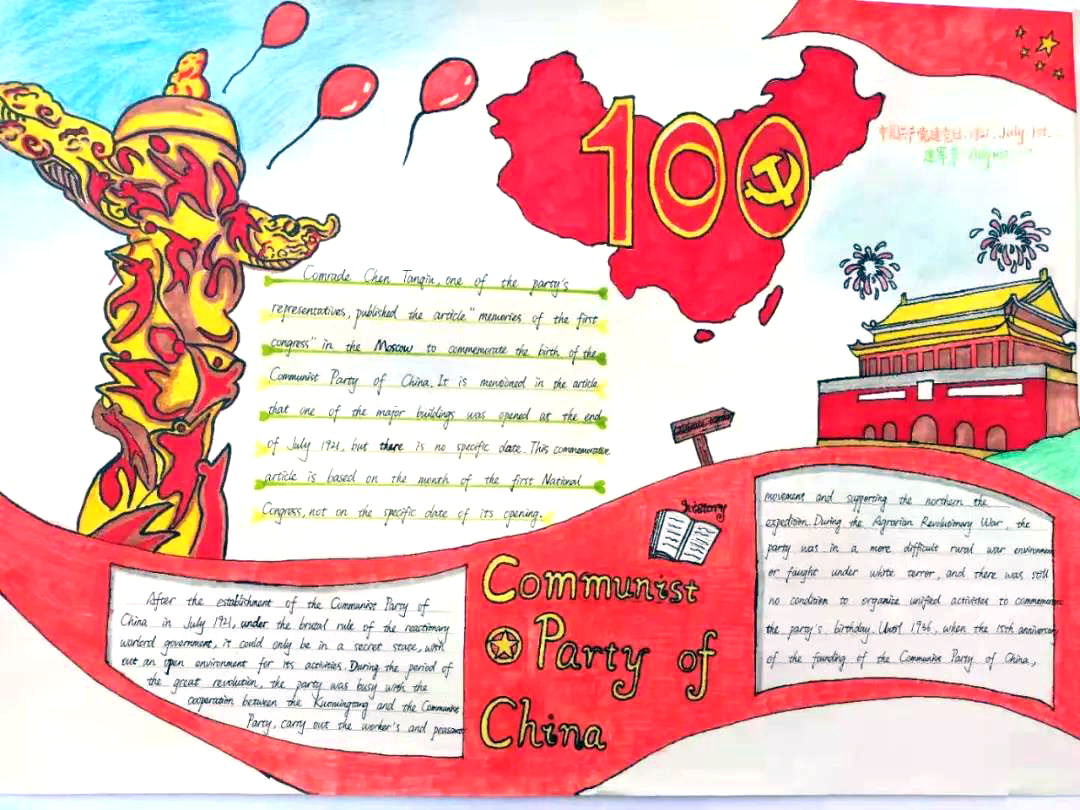 100
July 1st
建军节 August
Comrade Chen Tanqiu, one of the party's
representatives, published the article "memories of the first
congress" in the Moscow to commemorate the birth of the
Communist Party of China. It is mentioned in the article
that one of the major buildings was opened at the end
of July 1921, but there is no specific date. This commemorative
article is based on the month of the first National
Congress, not on the specific date of its opening.
history
Communist
Party of
China
After the establishment of the Communist Party of
China in July 1921, under the brutal rule of the reactionary
warlord government, it could only be in a secret state, with
out an open environment for its activities. During the period of
the great revolution, the party was busy with the
cooperation between the Kuomingtang and the Communist
Party, carry out the worker's and peasant
movement and supporting the northern the
expedition. During the Agrarian Revolutionary War, the
party was in a more difficult rural war environment
or faught under white terror, and there was still
no condition to organize unified activities to commemorate
the party's birthday. Until 1936, when the 15th anniversary
of the founding of the Communist Party of China,